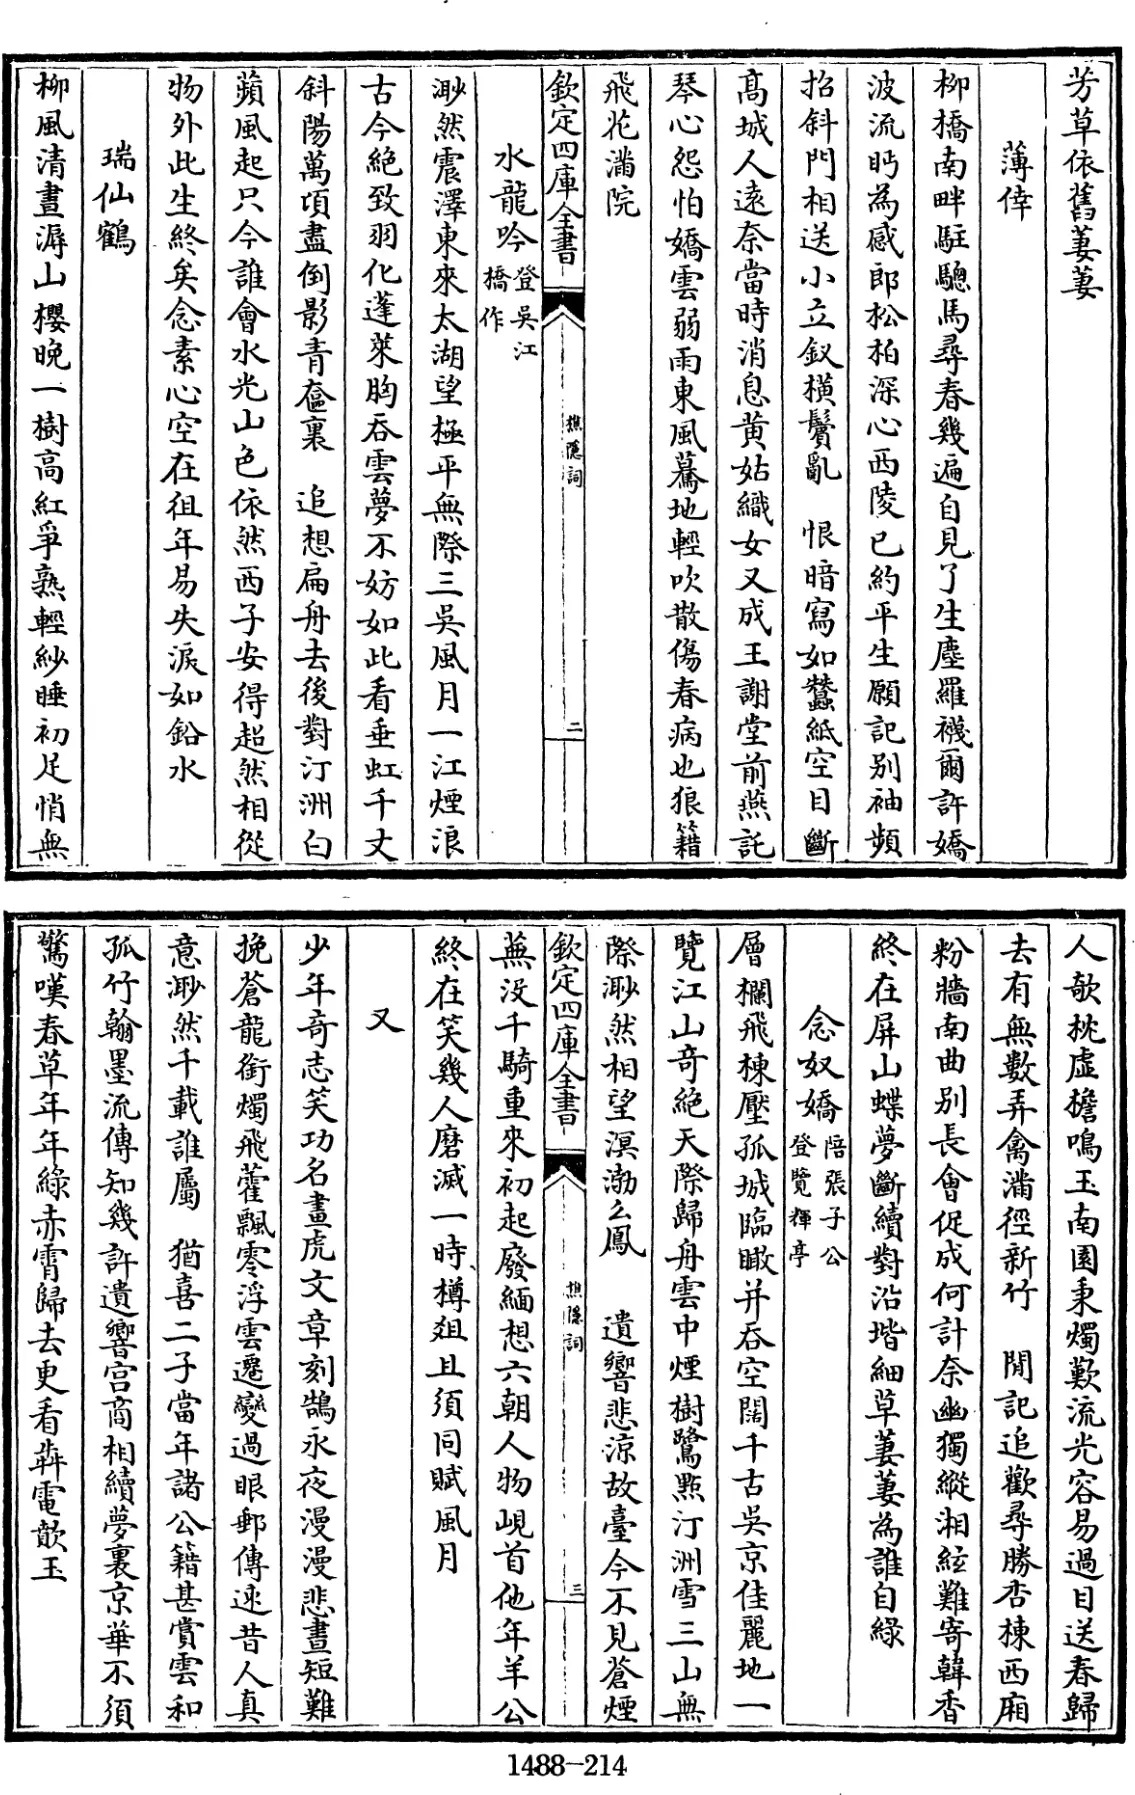 芳草依舊萋萋
薄倖
柳橋南畔駐驄馬尋春幾遍自見了生塵羅襪爾許嬌
波流眄為感郎松柏深心西陵已約平生願記别袖頻
招斜門相送小立釵横鬢亂　恨暗寫如蠶紙空目斷
髙城人遠奈當時消息黄姑織女又成王謝堂前燕託
琴心怨怕嬌雲弱雨東風驀地輕吹散傷春病也狼籍
飛花滿院
欽定四庫全書
樵隱詞
二
水龍吟登吳江橋作
渺然震澤東來太湖望極平無際三吳風月一江煙浪
古今絶致羽化蓬萊胸吞雲夢不妨如此看垂虹千丈
斜陽萬頃盡倒影青奩裏　追想扁舟去後對汀洲白
蘋風起只今誰會水光山色依然西子安得超然相從
物外此生終矣念素心空在徂年易失淚如鉛水
瑞仙鶴
柳風清晝溽山櫻晚一樹高紅爭熟輕紗睡初足悄無
人欹枕虛檐鳴玉南園秉燭歎流光容易過目送春歸
去有無數弄禽滿徑新竹　閒記追歡尋勝杏棟西廂
粉牆南曲别長會促成何計奈幽獨縱湘絃難寄韓香
終在屏山蝶夢斷續對沿堦細草萋萋為誰自緑
念奴嬌陪張子公登覽輝亭
層欄飛棟壓孤城臨瞰并吞空闊千古吳京佳麗地一
覽江山奇絶天際歸舟雲中煙樹鷺點汀洲雪三山無
際渺然相望溟渤么鳳　遺響悲涼故臺今不見蒼煙
欽定四庫全書
樵隱詞
三
蕪没千騎重來初起廢緬想六朝人物峴首他年羊公
終在笑幾人磨滅一時樽爼且須同賦風月
又
少年奇志笑功名畫虎文章刻鵠永夜漫漫悲晝短難
挽蒼龍銜燭飛藿飄零浮雲遷變過眼郵傳速昔人真
意渺然千載誰屬　猶喜二子當年諸公籍甚賞雲和
孤竹翰墨流傳知幾許遺響宮商相續夢裏京華不須
驚嘆春草年年緑赤霄歸去更看犇電歕玉
1488-214